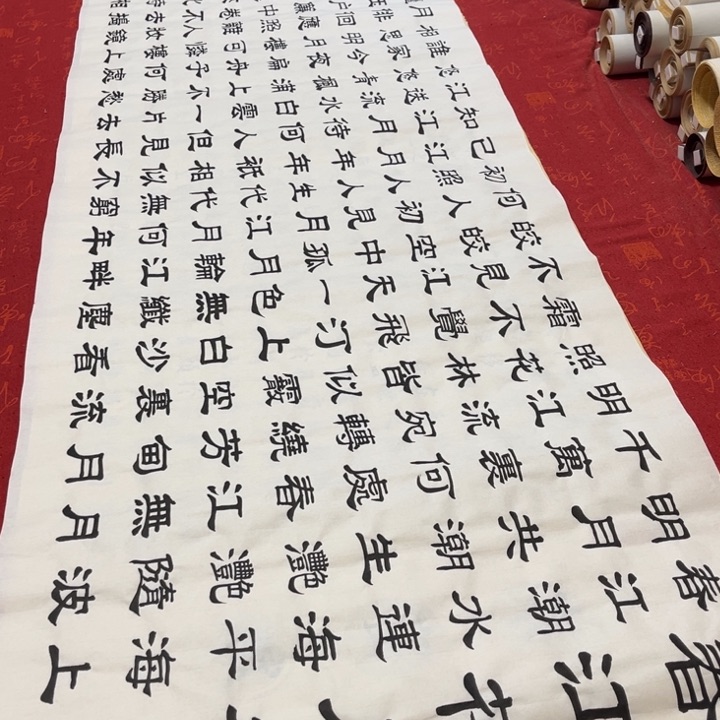 春江花月
春江潮水連海平海上
明月共潮生灩灩隨波
千萬裏何處春江無月
明江流宛轉繞芳甸月
照花林皆似霰空裏流
霜不覺飛汀上白沙看
不見江天一色無纖塵
皎皎空中孤月輪江畔
何人初見月江月何年
初照人人生代代無窮
已江月年年祗相似不
知江月待何人但見長
江送流水白雲一片去
悠悠青楓浦上不勝愁
誰家今夜扁舟子何處
相思明月樓可憐樓上
月徘徊應照離人妝鏡